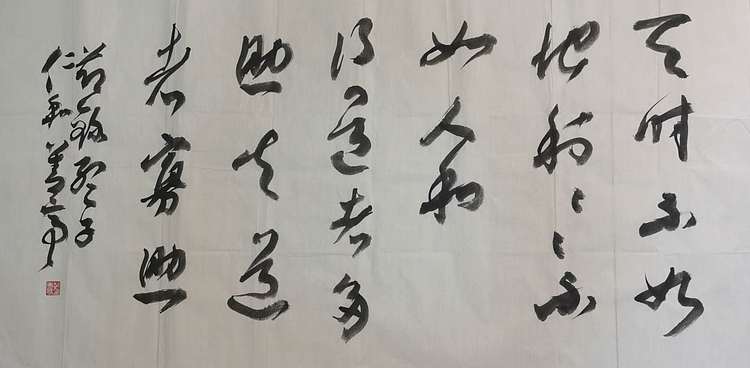 天时不如
地利々々不
如人和
得道者多
助失道
者寡助
节录孟子
仁和